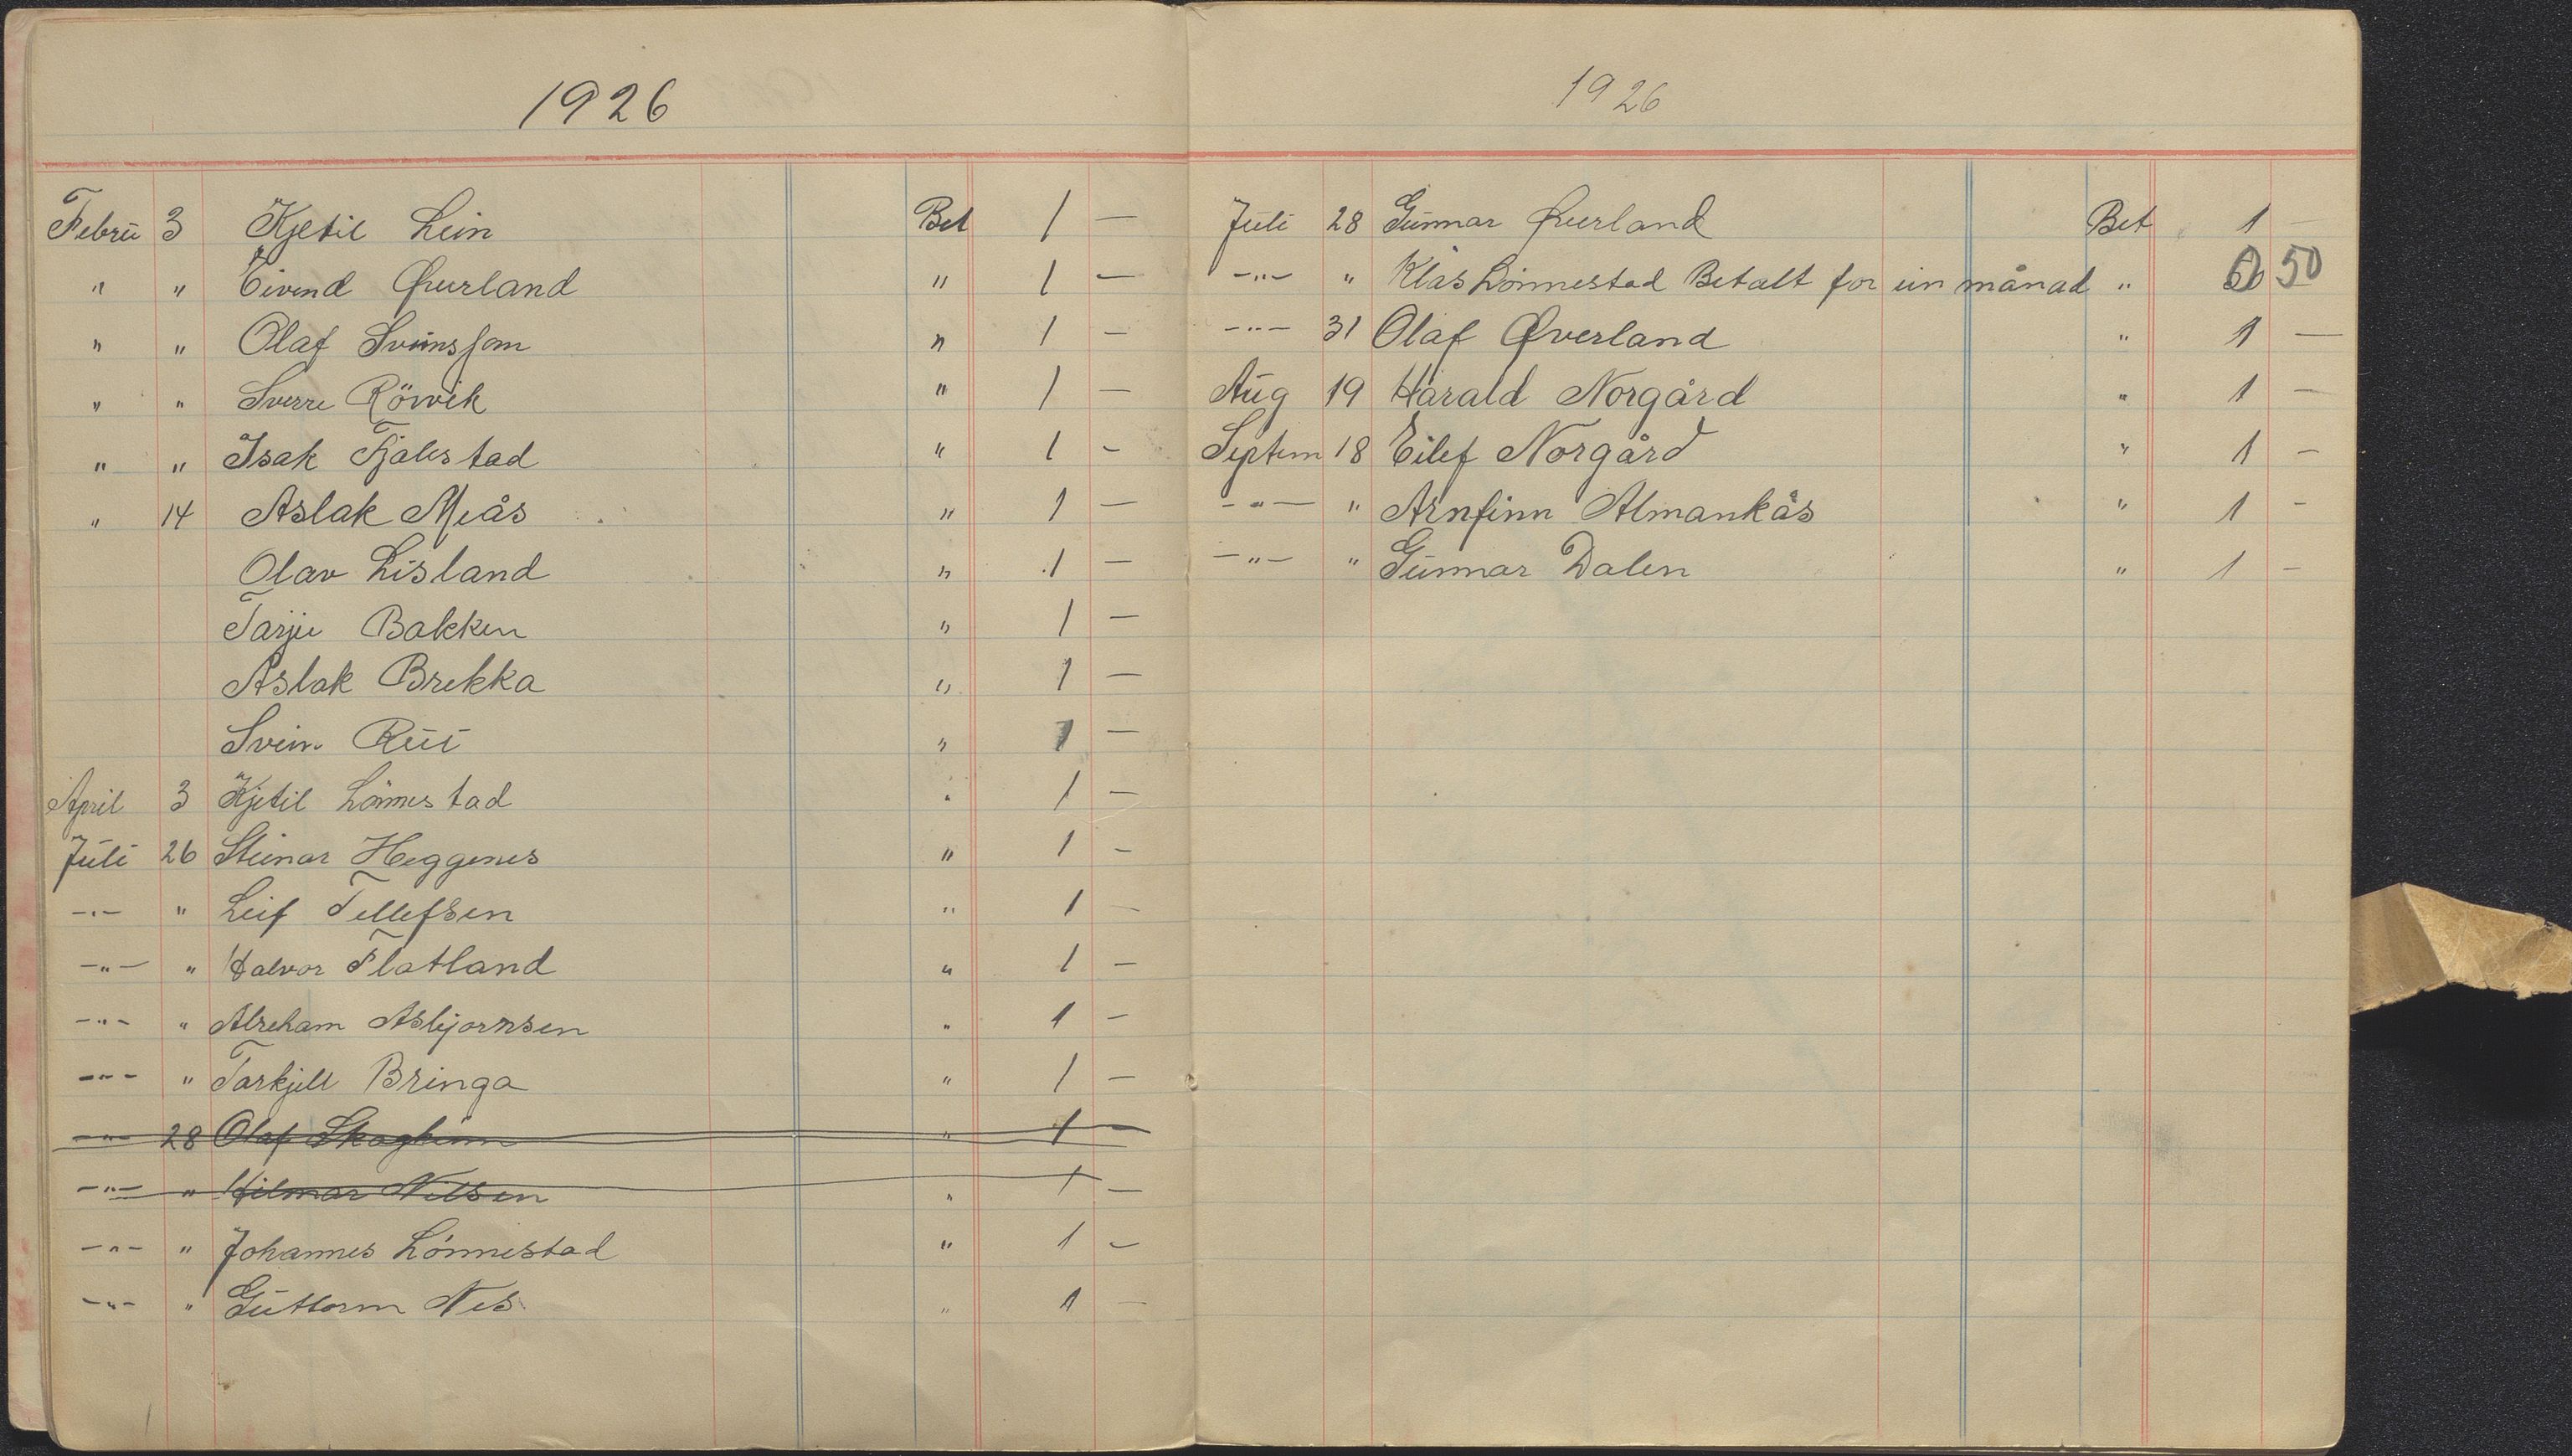 1926
Febru 3 Kjetil Lein Bet 1 —
" " Eivind Øverland " 1 —
" " Olaf Sveinsson " 1 —
" " Sverre Rörvik " 1 —
" " Isak Fjalestad " 1 -
" 14 Aslak Meås " 1 —
Olav Lisland " 1 —
Tarjei Bakken " 1 —
Aslak Brekka " 1 —
Svein Rui " 1 —
April 3 Kjetil Lönnestad " 1 —
Juli 26 Steinar Heggenes " 1 -
-"- " Leif Tellefsen " 1 —
-"- " Halvor Flatland " 1 —
-"- " Abreham Asbjornsen " 1 -
-"- " Tarkjell Bringa " 1 —
-"- 28 Olaf " 1 —
-"- " Hilmar Nilsen " 1 —
-"- " Johannes Lönnestad " 1 -
-"- " Guttorm Nes " 1 —
1926
Juli 28 Gunnar Øverland Bet 1 —
-"- " Klas Lönnestad Betalt for ein månad " 50
-"- 31 Olaf Øverland " 1 —
Aug 19 Harald Norgård " 1 -
Septem 18 Eilef Norgård " 1 -
-"- " Arnfinn Almankås " 1 -
-"- " Gunnar Dalen " 1 -